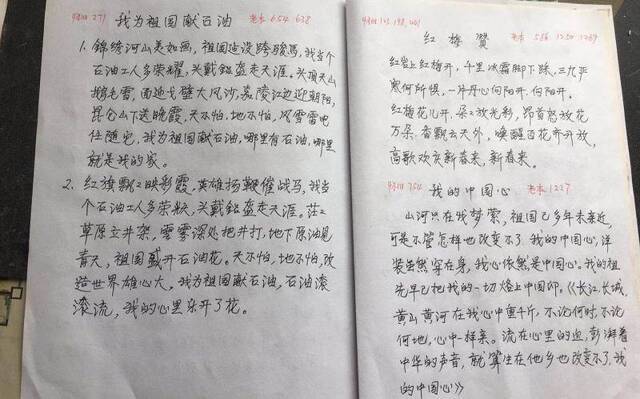 我为祖国献石油
老本 654 638
1. 锦绣河山美如画，祖国建设跨骏马，我当个
石油工人多荣耀，头戴铝盔走天涯。头顶天山
鹅毛雪，面迎戈壁大风沙，嘉陵江边迎朝阳，
昆仑山下送晚霞，天不怕，地不怕，风雪雷电
任随它，我为祖国献石油，哪里有石油，哪里
就是我的家。
2. 红旗飘飘映彩霞，英雄扬鞭催战马，我当
个石油工人多荣耀，头戴铝盔走天涯。茫茫
草原立井架，云雾深处把井打，地下原油见
青天，祖国盛开石油花，天不怕，地不怕，改
造世界雄心大，我为祖国献石油，石油滚
滚流，我的心里乐开了花。
红梅赞
老本 586 1250 1269
红岩上红梅开，千里冰霜脚下踩，三九严
寒何所惧，一片丹心向阳开，向阳开。
红梅花儿开，朵朵放光彩，昂首怒放花
万朵，香飘云天外，唤醒百花齐开放，
高歌欢庆新春来，新春来。
我的中国心
老本 1227
山河只在我梦萦，祖国已多年未亲近，
可是不管怎样也改变不了，我的中国心，洋
装虽然穿在身，我心依然是中国心。我的祖
先早已把我的一切烙上中国印。《长江，长城，
黄山黄河在我心中重千斤，不论何时，不论
何地，心中一样亲。流在心里的血，澎湃着
中华的声音，就算生在他乡也改变不了，我
的中国心》